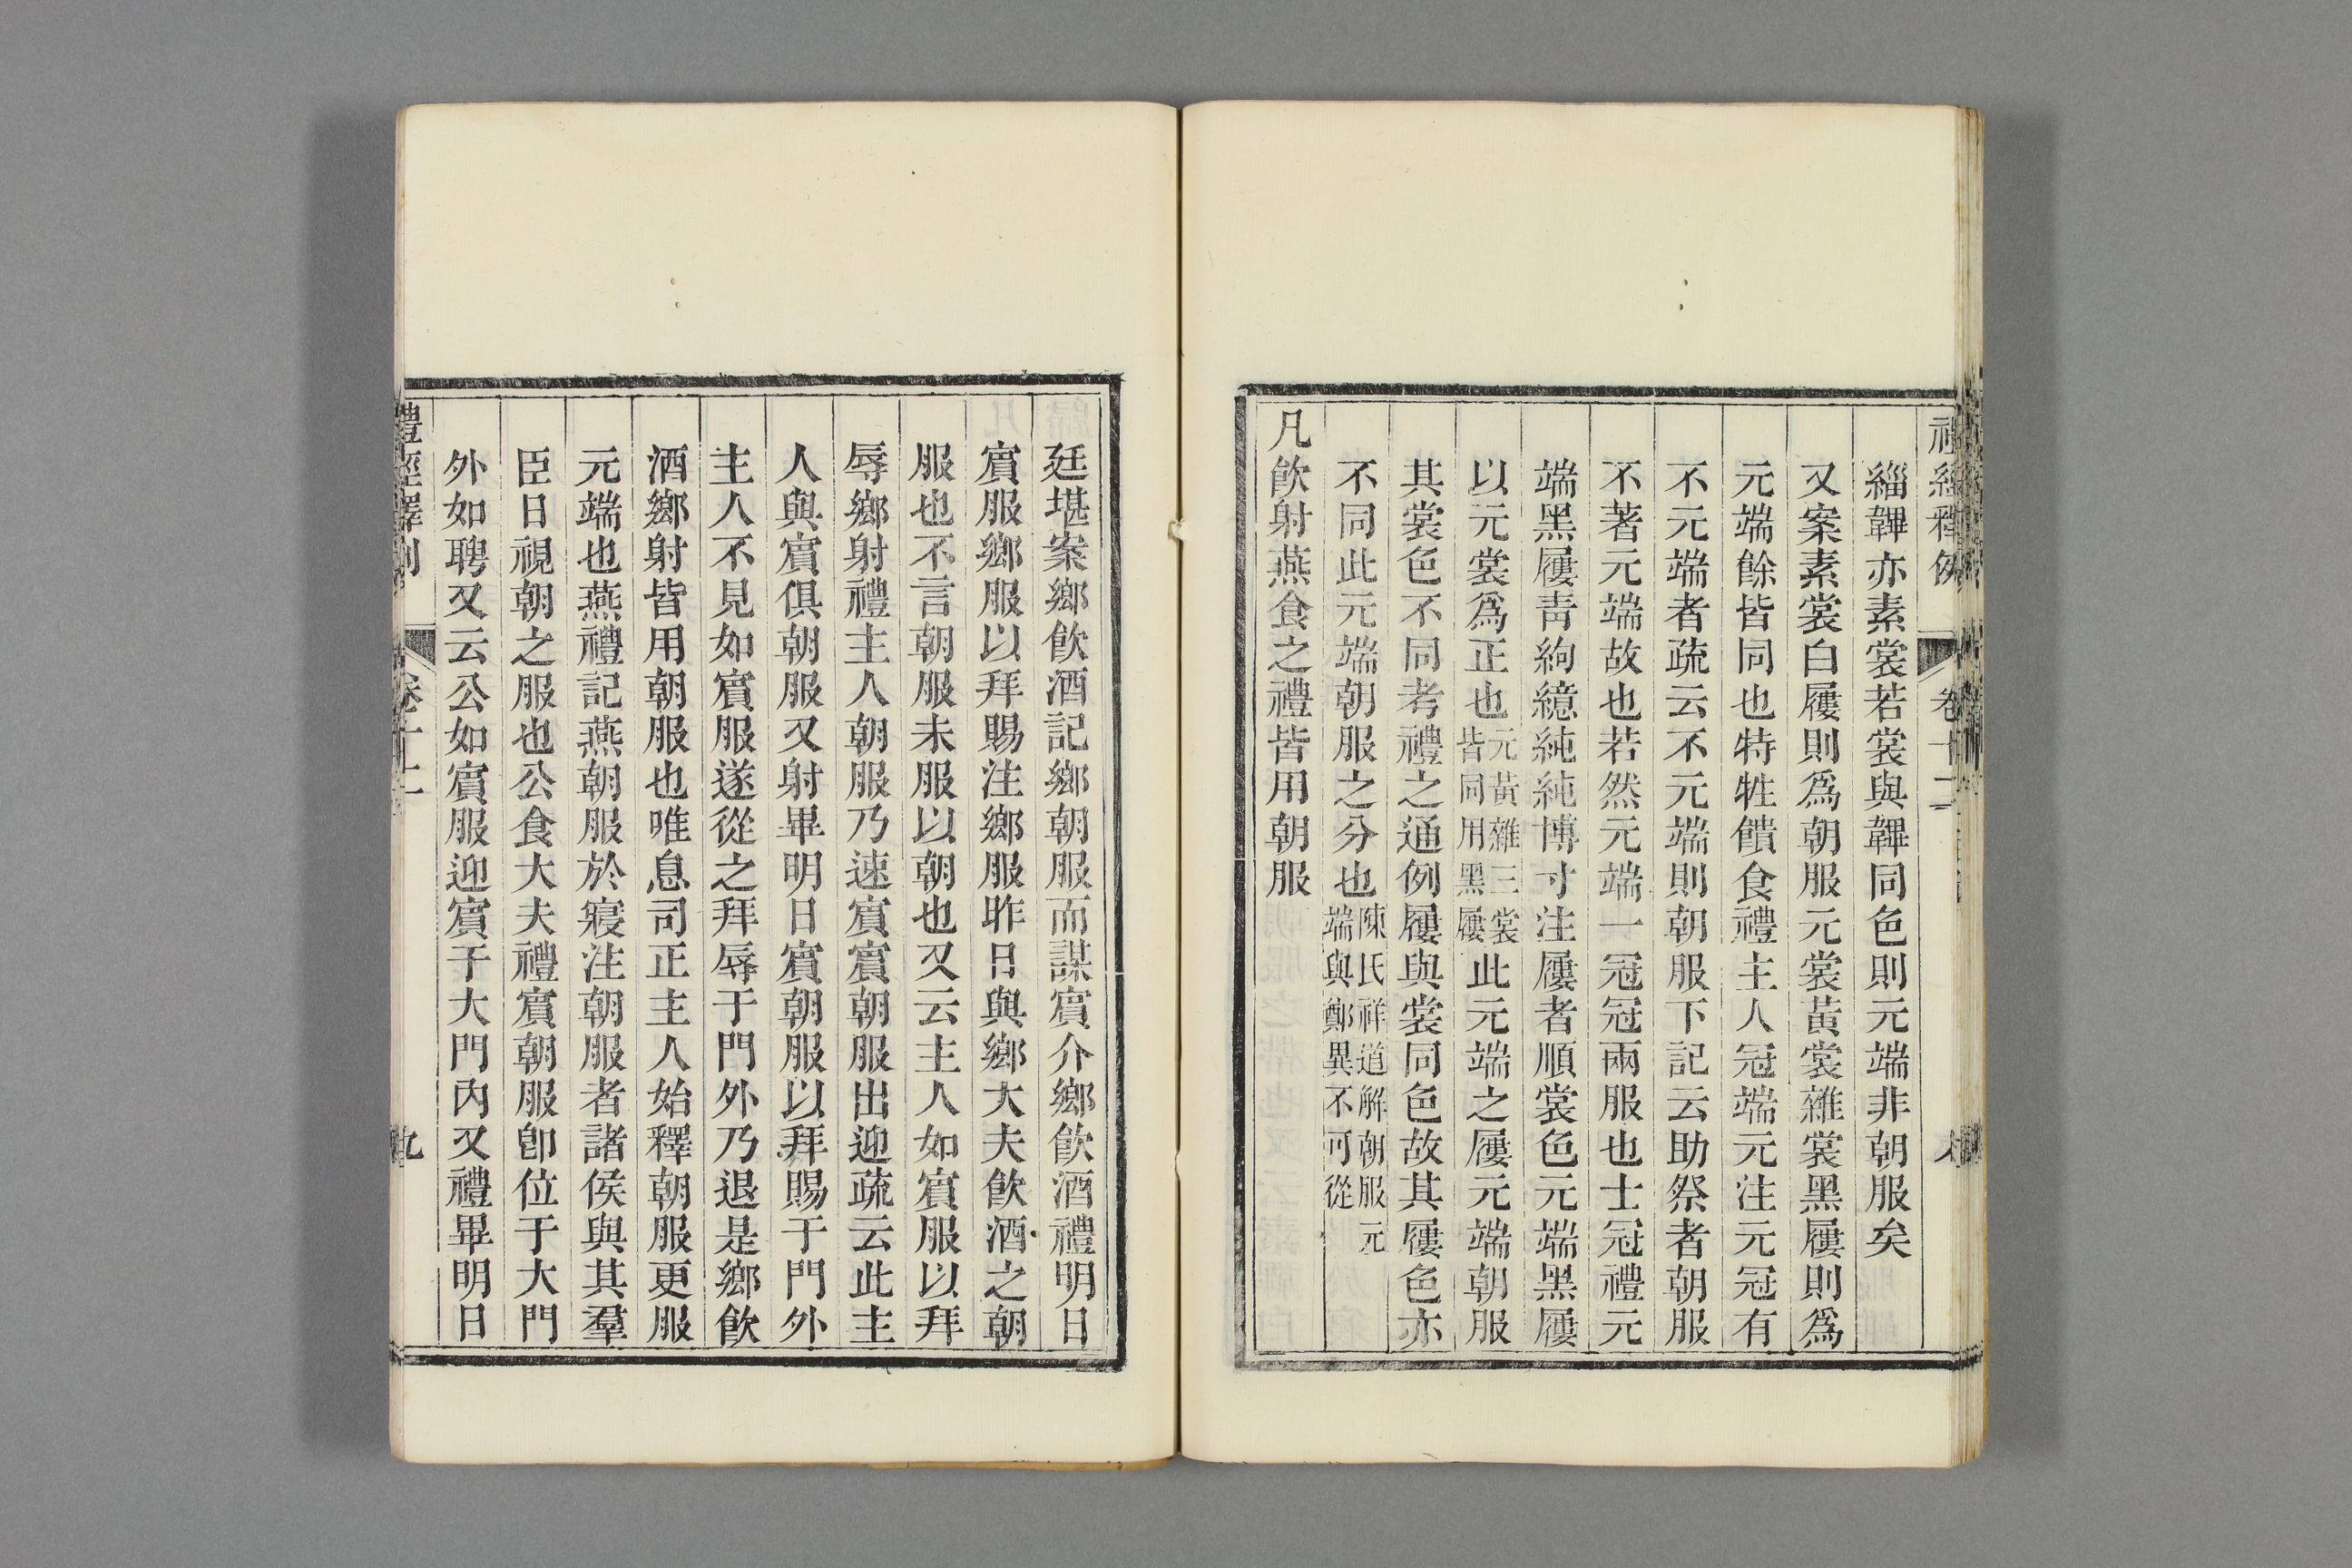 禮經釋例 卷十二 八
緇韠亦素裳若裳與韠同色則元端非朝服矣
又案素裳白屨則爲朝服元裳黃裳雜裳黑屨則爲
元端餘皆同也特牲饋食禮主人冠端元注元冠有
不元端者疏云不元端則朝服下記云助祭者朝服
不著元端故也若然元端一冠冠兩服也士冠禮元
端黑屨靑絇繶純純博寸注屨者順裳色元端黑屨
以元裳爲正也元黃雜三裳皆同用黑屨此元端之屨元端朝服
其裳色不同考禮之通例屨與裳同色故其屨色亦
不同此元端朝服之分也陳氏祥道解朝服元端與鄭異不可從
凡飮射燕食之禮皆用朝服
廷堪案鄉飮酒記鄉朝服而謀賓介鄉飮酒禮明日
賓服鄉服以拜賜注鄉服昨日與鄉大夫飮酒之朝
服也不言朝服未服以朝也又云主人如賓服以拜
辱鄉射禮主人朝服乃速賓賓朝服出迎疏云此主
人與賓俱朝服又射畢明日賓朝服以拜賜于門外
主人不見如賓服遂從之拜辱于門外乃退是鄉飮
酒鄉射皆用朝服也唯息司正主人始釋朝服更服
元端也燕禮記燕朝服於寢注朝服者諸侯與其羣
臣日視朝之服也公食大夫禮賓朝服卽位于大門
外如聘又云公如賓服迎賓于大門內又禮畢明日
禮經釋例 卷十二 九